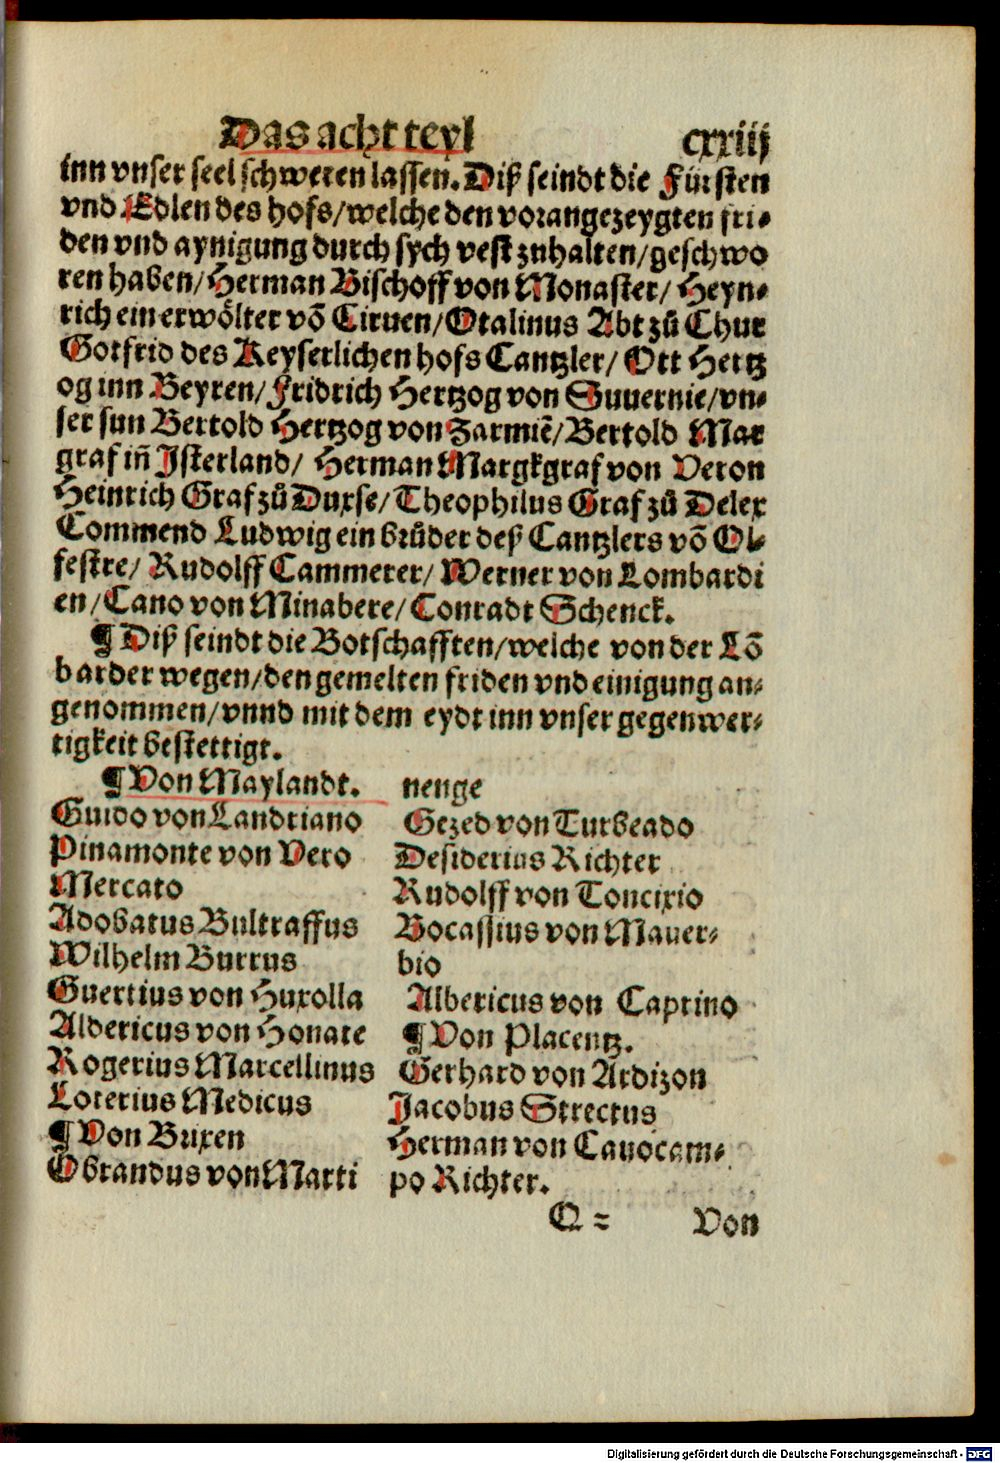 Das acht teyl cxxiij
inn vnser seel schweren lassen. Diß seindt die Fürsten
vnd Edlen des hofs/welche den vorangezeygten fri-
den vnd aynigung durch sych vest zuhalten/geschwo
ren haben/Herman Bischoff von Monaster/Heyn-
rich ein erwölter võ Ciruen/Otalinus Abt zů Chur
Gotfrid des Keyserlichen hofs Cantzler/Ott Hertz
og inn Beyren/Fridrich Hertzog von Suuernie/vn-
ser sun Bertold Hertzog von Zarmiẽ/Bertold Mar
graf in̄ Isterland/ Herman Margkgraf von Veron
Heinrich Graf zů Duxse/Theophilus Graf zů Delex
Commend Ludwig ein brůder deß Cantzlers võ Ol-
festre/ Rudolff Cammerer/ Werner von Lombardi
en/Cano von Minabere/Conradt Schenck.
¶ Diß seindt die Botschafften/welche von der Lõ
barder wegen/den gemelten friden vnd einigung an-
genommen/vnnd mit dem eydt inn vnser gegenwer-
tigkeit bestettigt.
¶ Von Maylandt.
Guido von Landriano
Pinamonte von Vero
Mercato
Adobatus Bultraffus
Wilhelm Burrus
Guertius von Huxolla
Aldericus von Honate
Rogerius Marcellinus
Loterius Medicus
¶ Von Buxen
Obrandus von Marti
nenge
Gezed von Turbeado
Desiderius Richter
Rudolff von Toncixio
Bocassius von Mauer-
bio
Albericus von Caprino
¶ Von Placentz.
Gerhard von Ardizon
Jacobus Strectus
Herman von Cauocam-
po Richter.
Q 2 Von
Digitalisierung gefördert durch die Deutsche Forschungsgemeinschaft - DFG